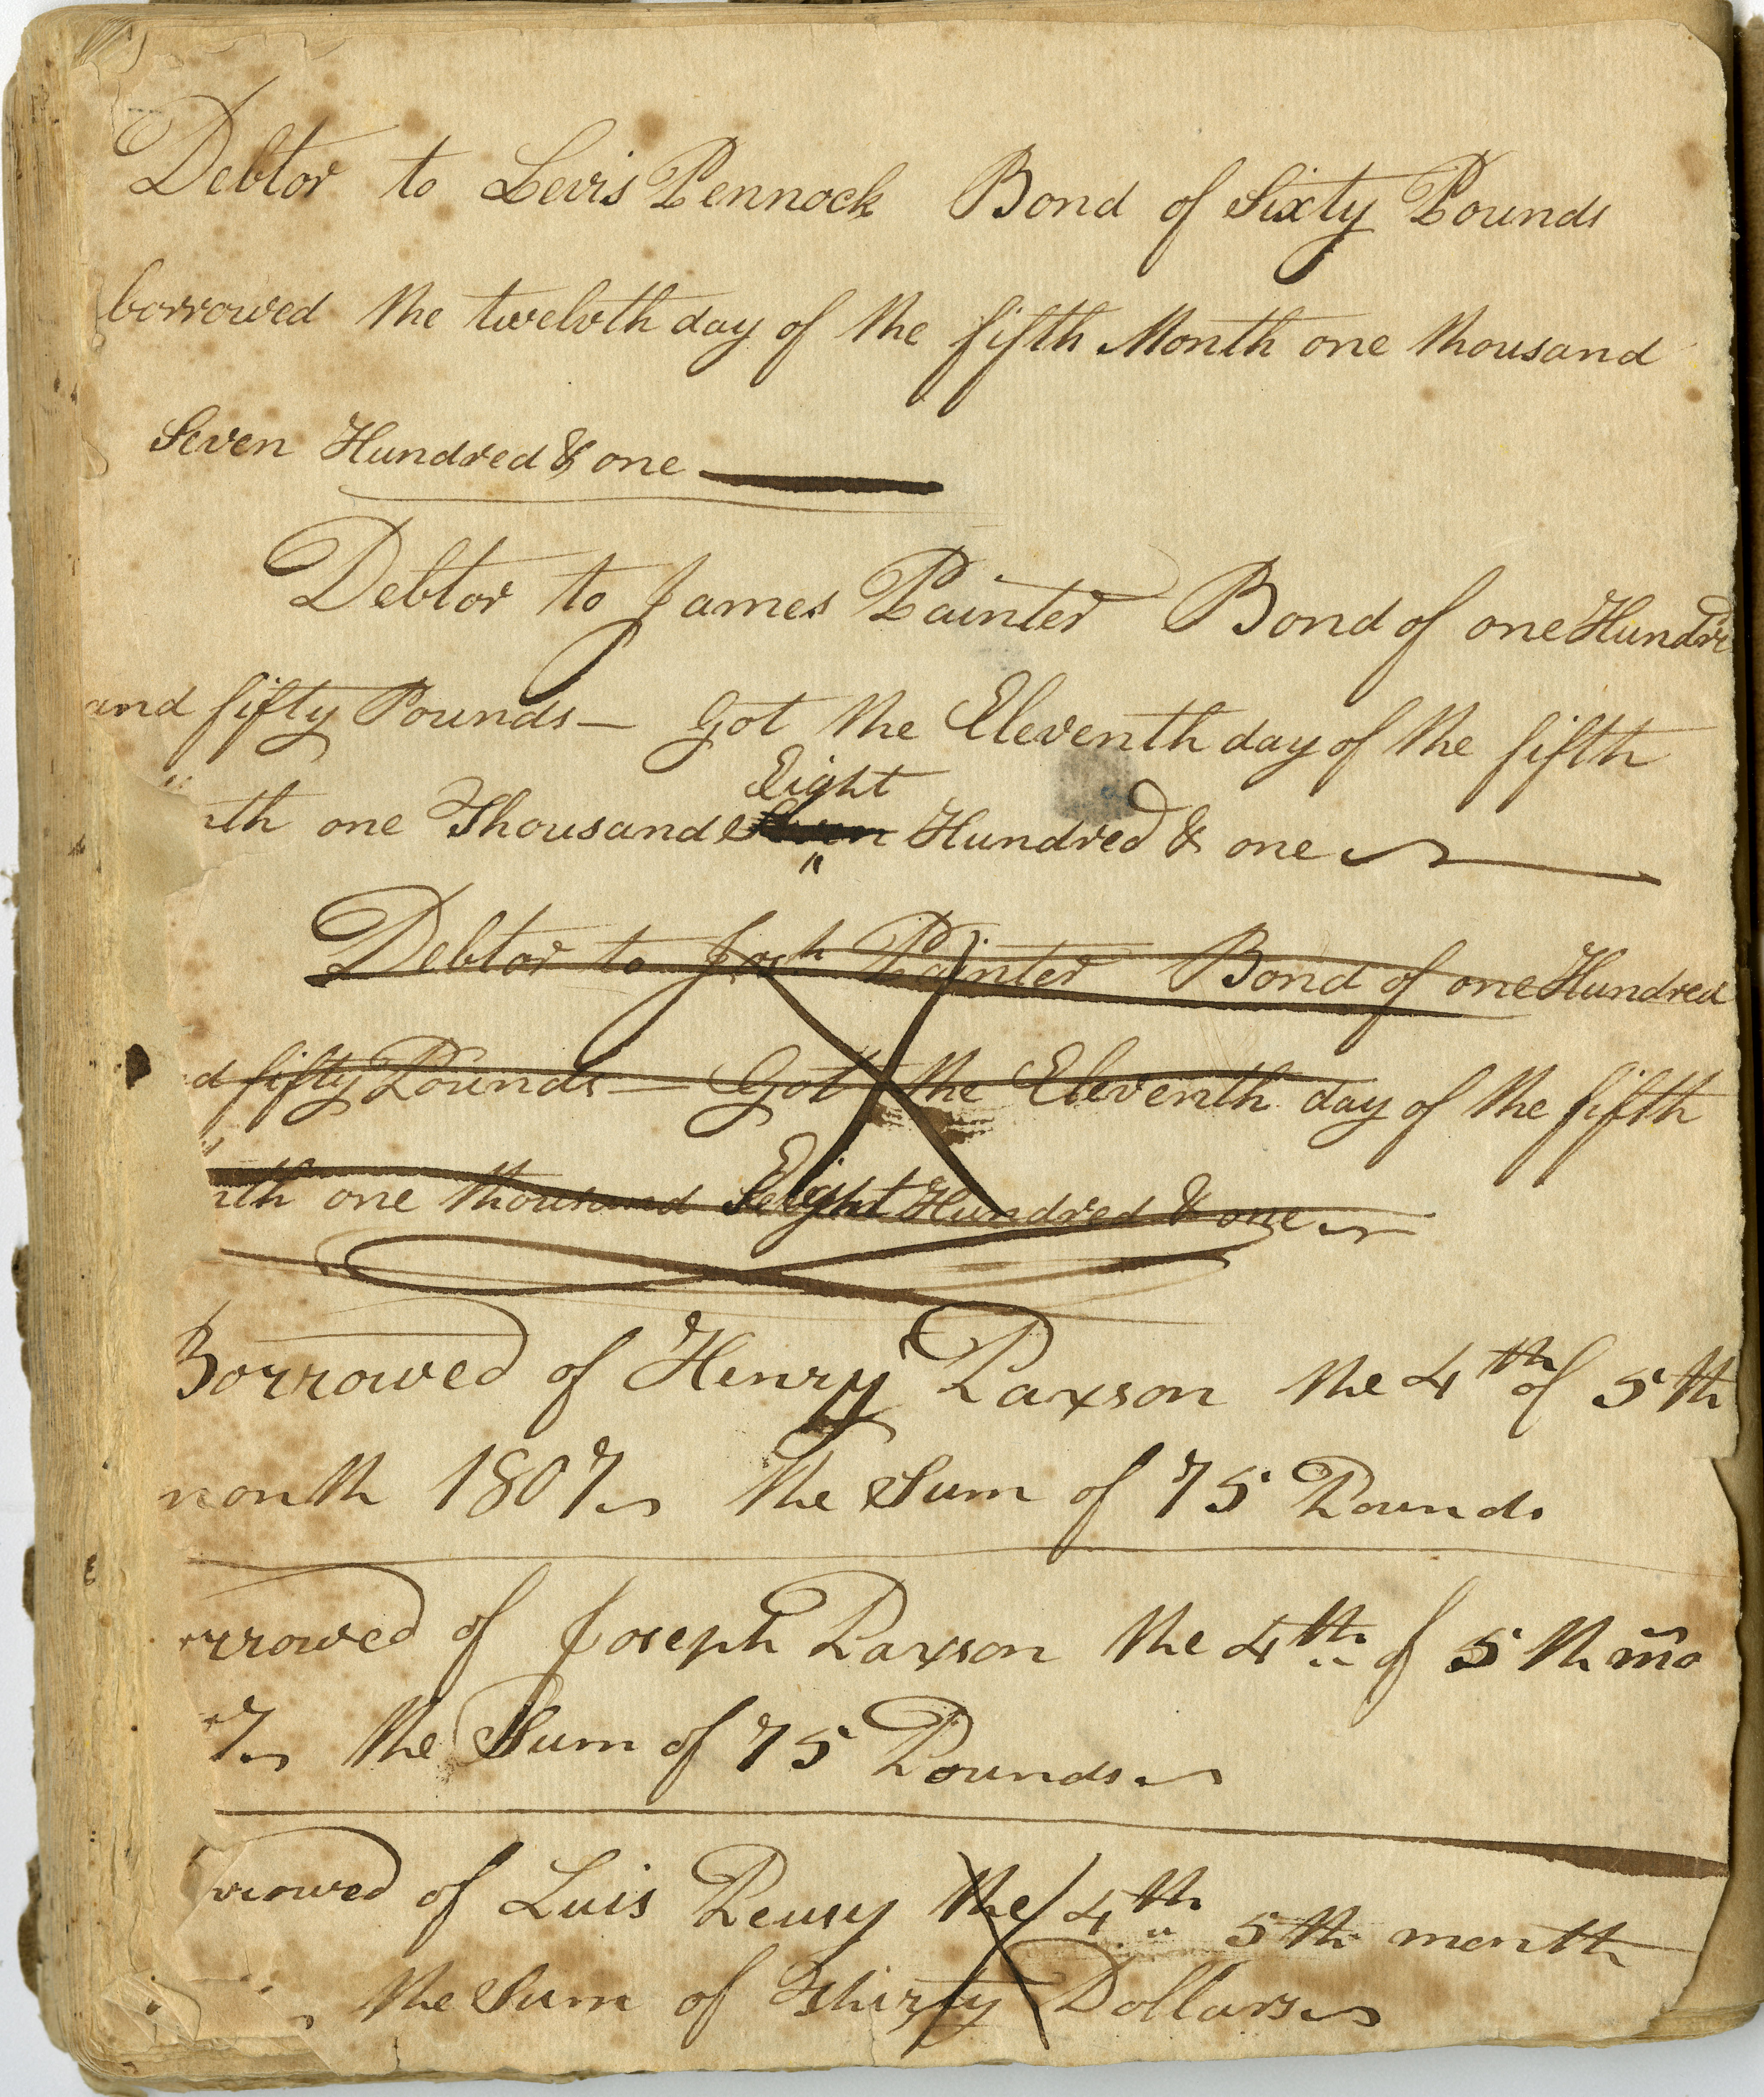 Debtor to Levis Pennock Bond of Sixty Pounds
borrowed the twelvth day of the fifth Month one thousand
Seven Hundred & one
Debtor to James Painter Bond of one Hundre
and fifty Pounds — Got the Eleventh day of the fifth
Eight
nth one Thousand Seven Hundred & one
Debtor to Josh Painter Bond of one Hundred
d fifty Pounds — Got the Eleventh day of the fifth
nth one thousand Eight Hundred & one
Borrowed of Henry Paxson the 4th of 5th
month 1807 the Sum of 75 Pounds
rrowed of Joseph Paxson the 4th of 5th mo
7 the Sum of 75 Pounds
rrowed of Luis the 4th 5th month
the Sum of Thirty Dollars